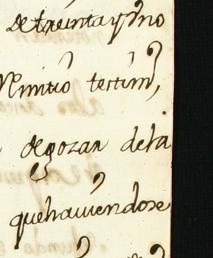 de treinta y uno
Remitió testim,
de gozar de la
que haviendose